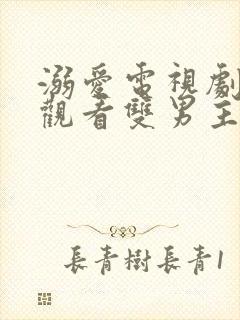 溺愛電視劇
觀看雙男主
長青樹長青1